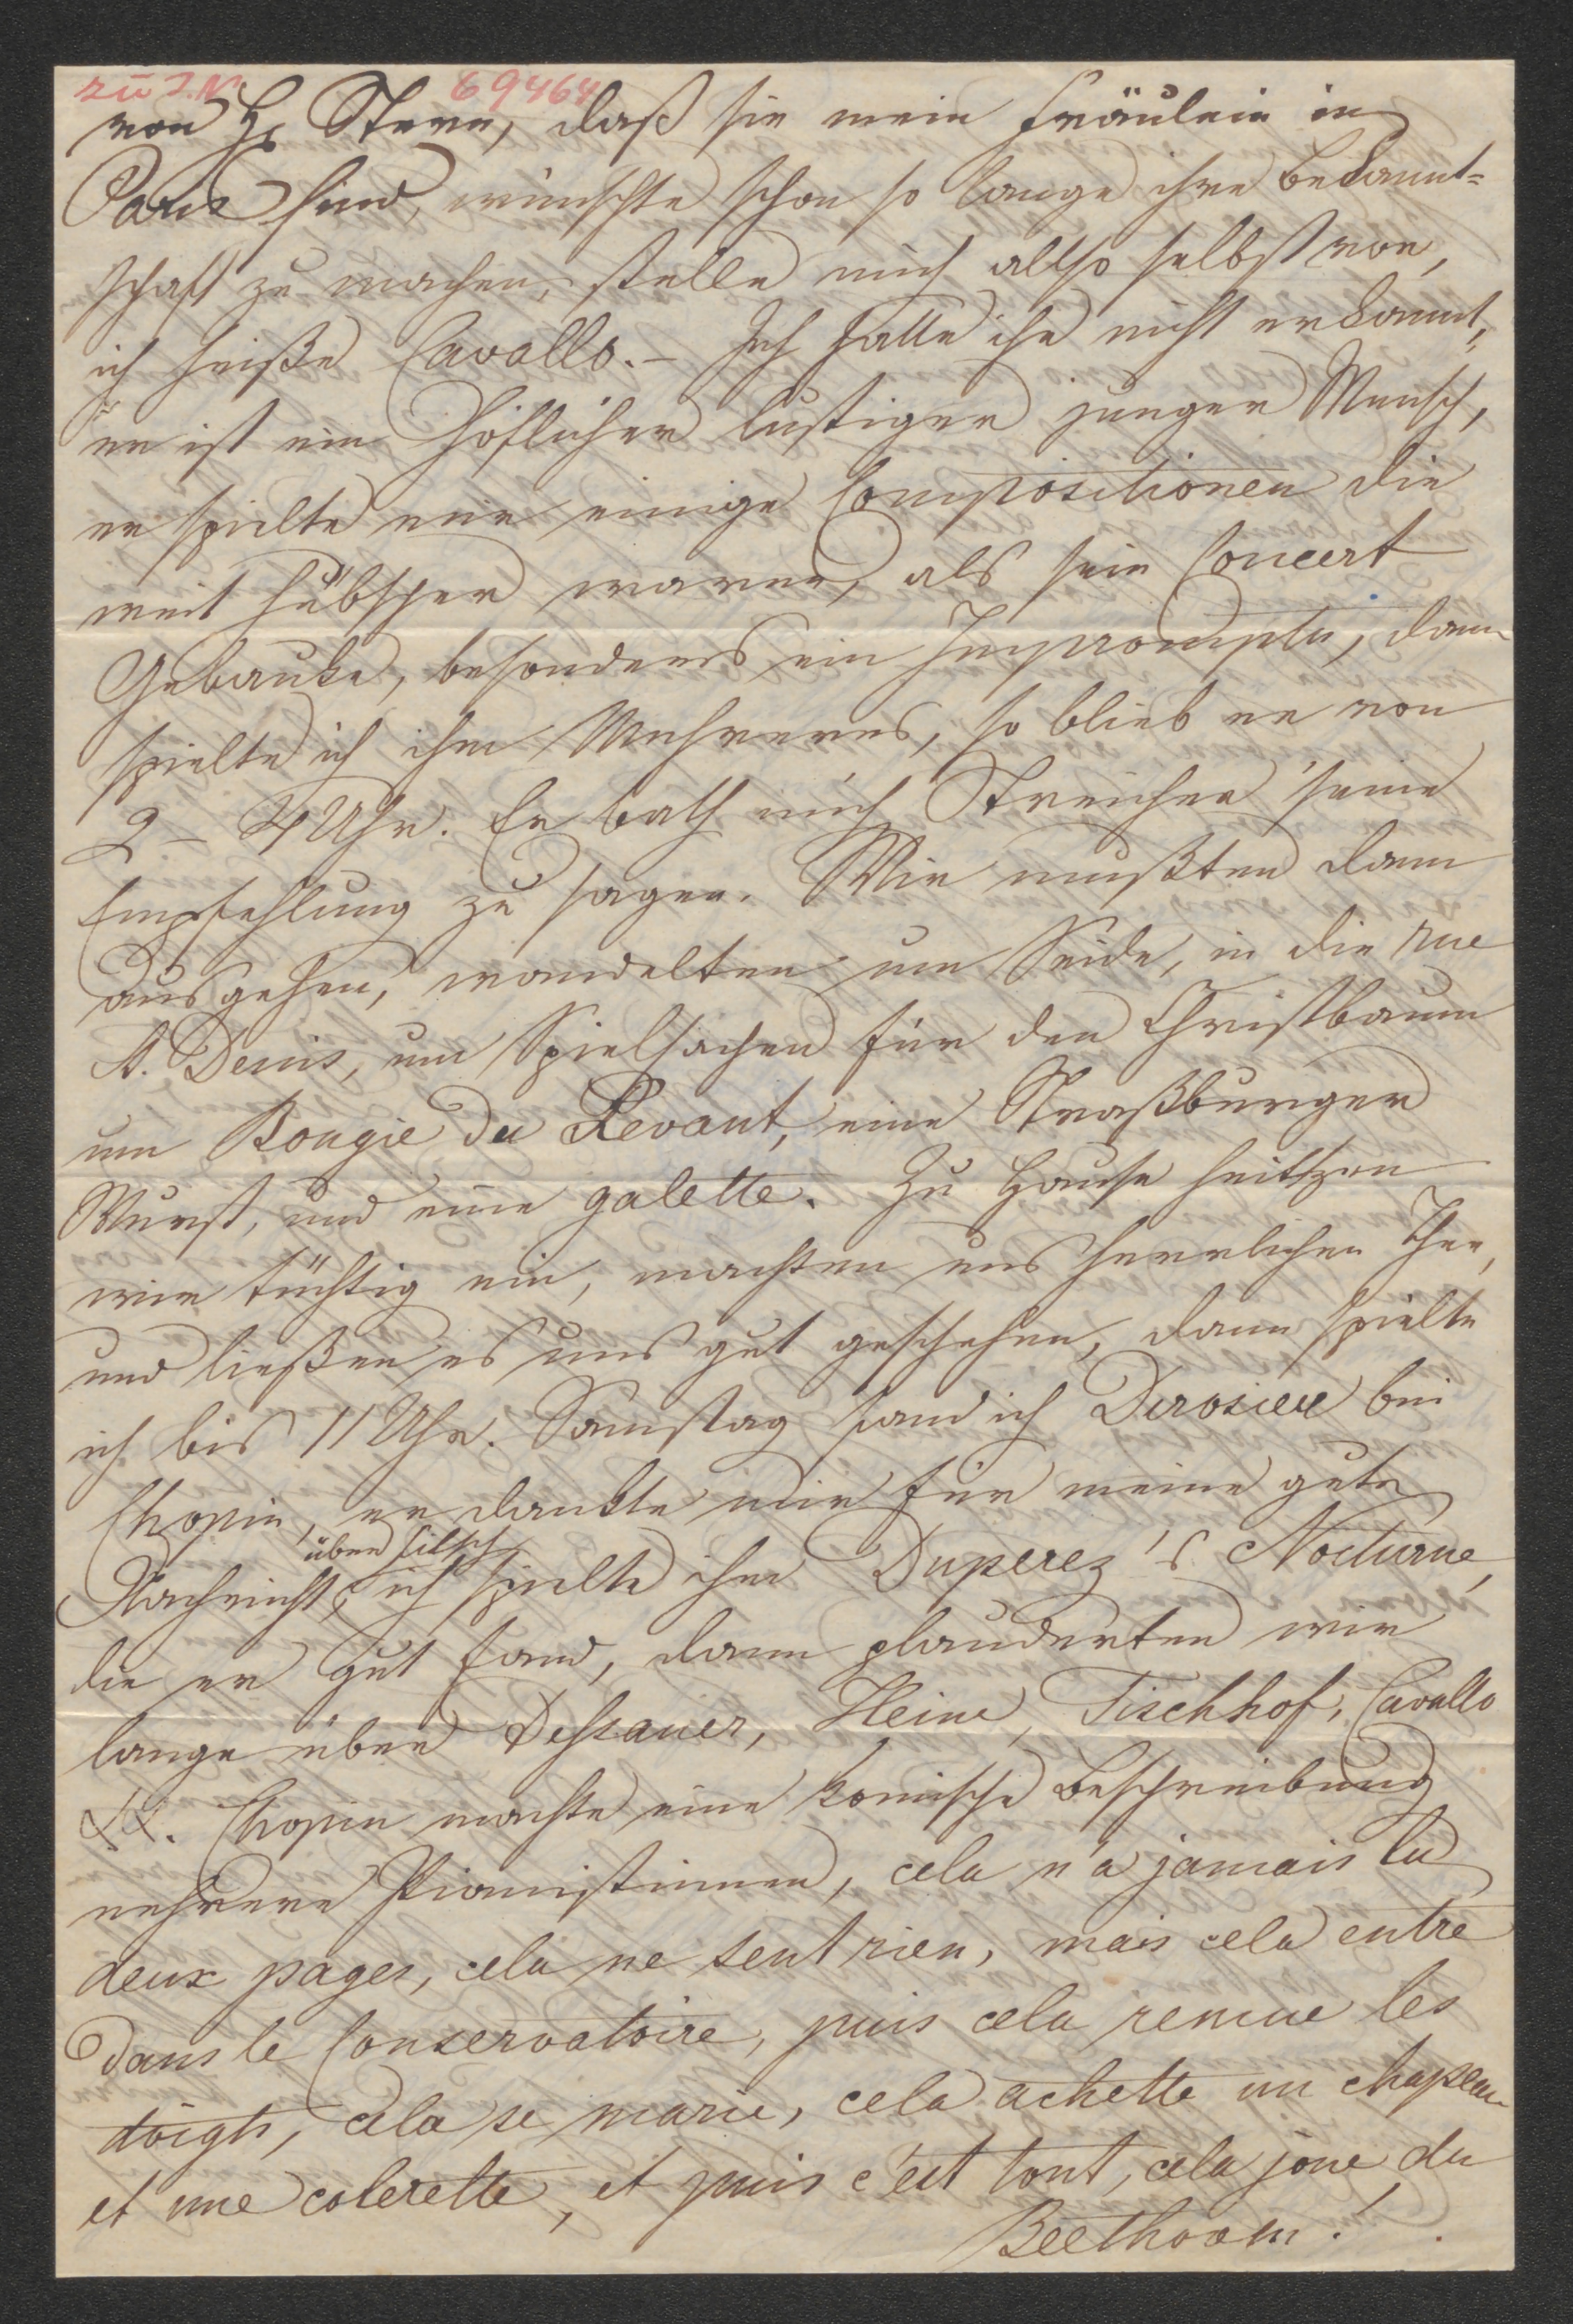 zu I.N. 69464
von H Stern, daß sie mein Fräulein in
Paris sind, wünschte schon so lange ihre Bekannt=
schaft zu machen, stelle mich allso selbst vor,
ich heiße Cavallo. – Ich hatte ihn nicht erkannt,
er ist ein höflicher lustiger junger Mensch,
er spielte mir einige Compositionen die
weit hübscher waren, als sein Concert
Gebauke, besonders ein Impromptu, dann
spielte ich ihm Mehreres, so blieb er von
2 – 4 Uhr. Er bath mich Streicher seine
Empfehlung zu sagen. Wir mußten dann
ausgehen, wandelten um Seide, in die rue
St. Denis, um Spielsachen für den Christbaum
um Bougie du Levant, eine Straßburger
Wurst, und eine galette. Zu Hause heitzten
wir tüchtig ein, machten uns herrlichen Thee,
und ließen es uns gut geschehen, dann spielte
ich bis 11 Uhr. Samstag fand ich Derosiere bei
Chopin, er dankte mir für meine gute
über Filsch
Nachricht, ich spielte ihm Duperez's Nocturne,
die er gut fand, dann plauderten wir
lange über Dessauer, Heine, Fischhof, Cavallo
&&. Chopin machte eine komische Beschreibung
mehrere Pianistinnen, cela n'a jamais lu
deux pages, cela ne sent rien, mais cela entre
dans le Conservatoire, puis cela remue les
doigts, cela se marie, cela achette un chapeau
et une colerette, et puis c'est tout, cela joue du
Beethoven!